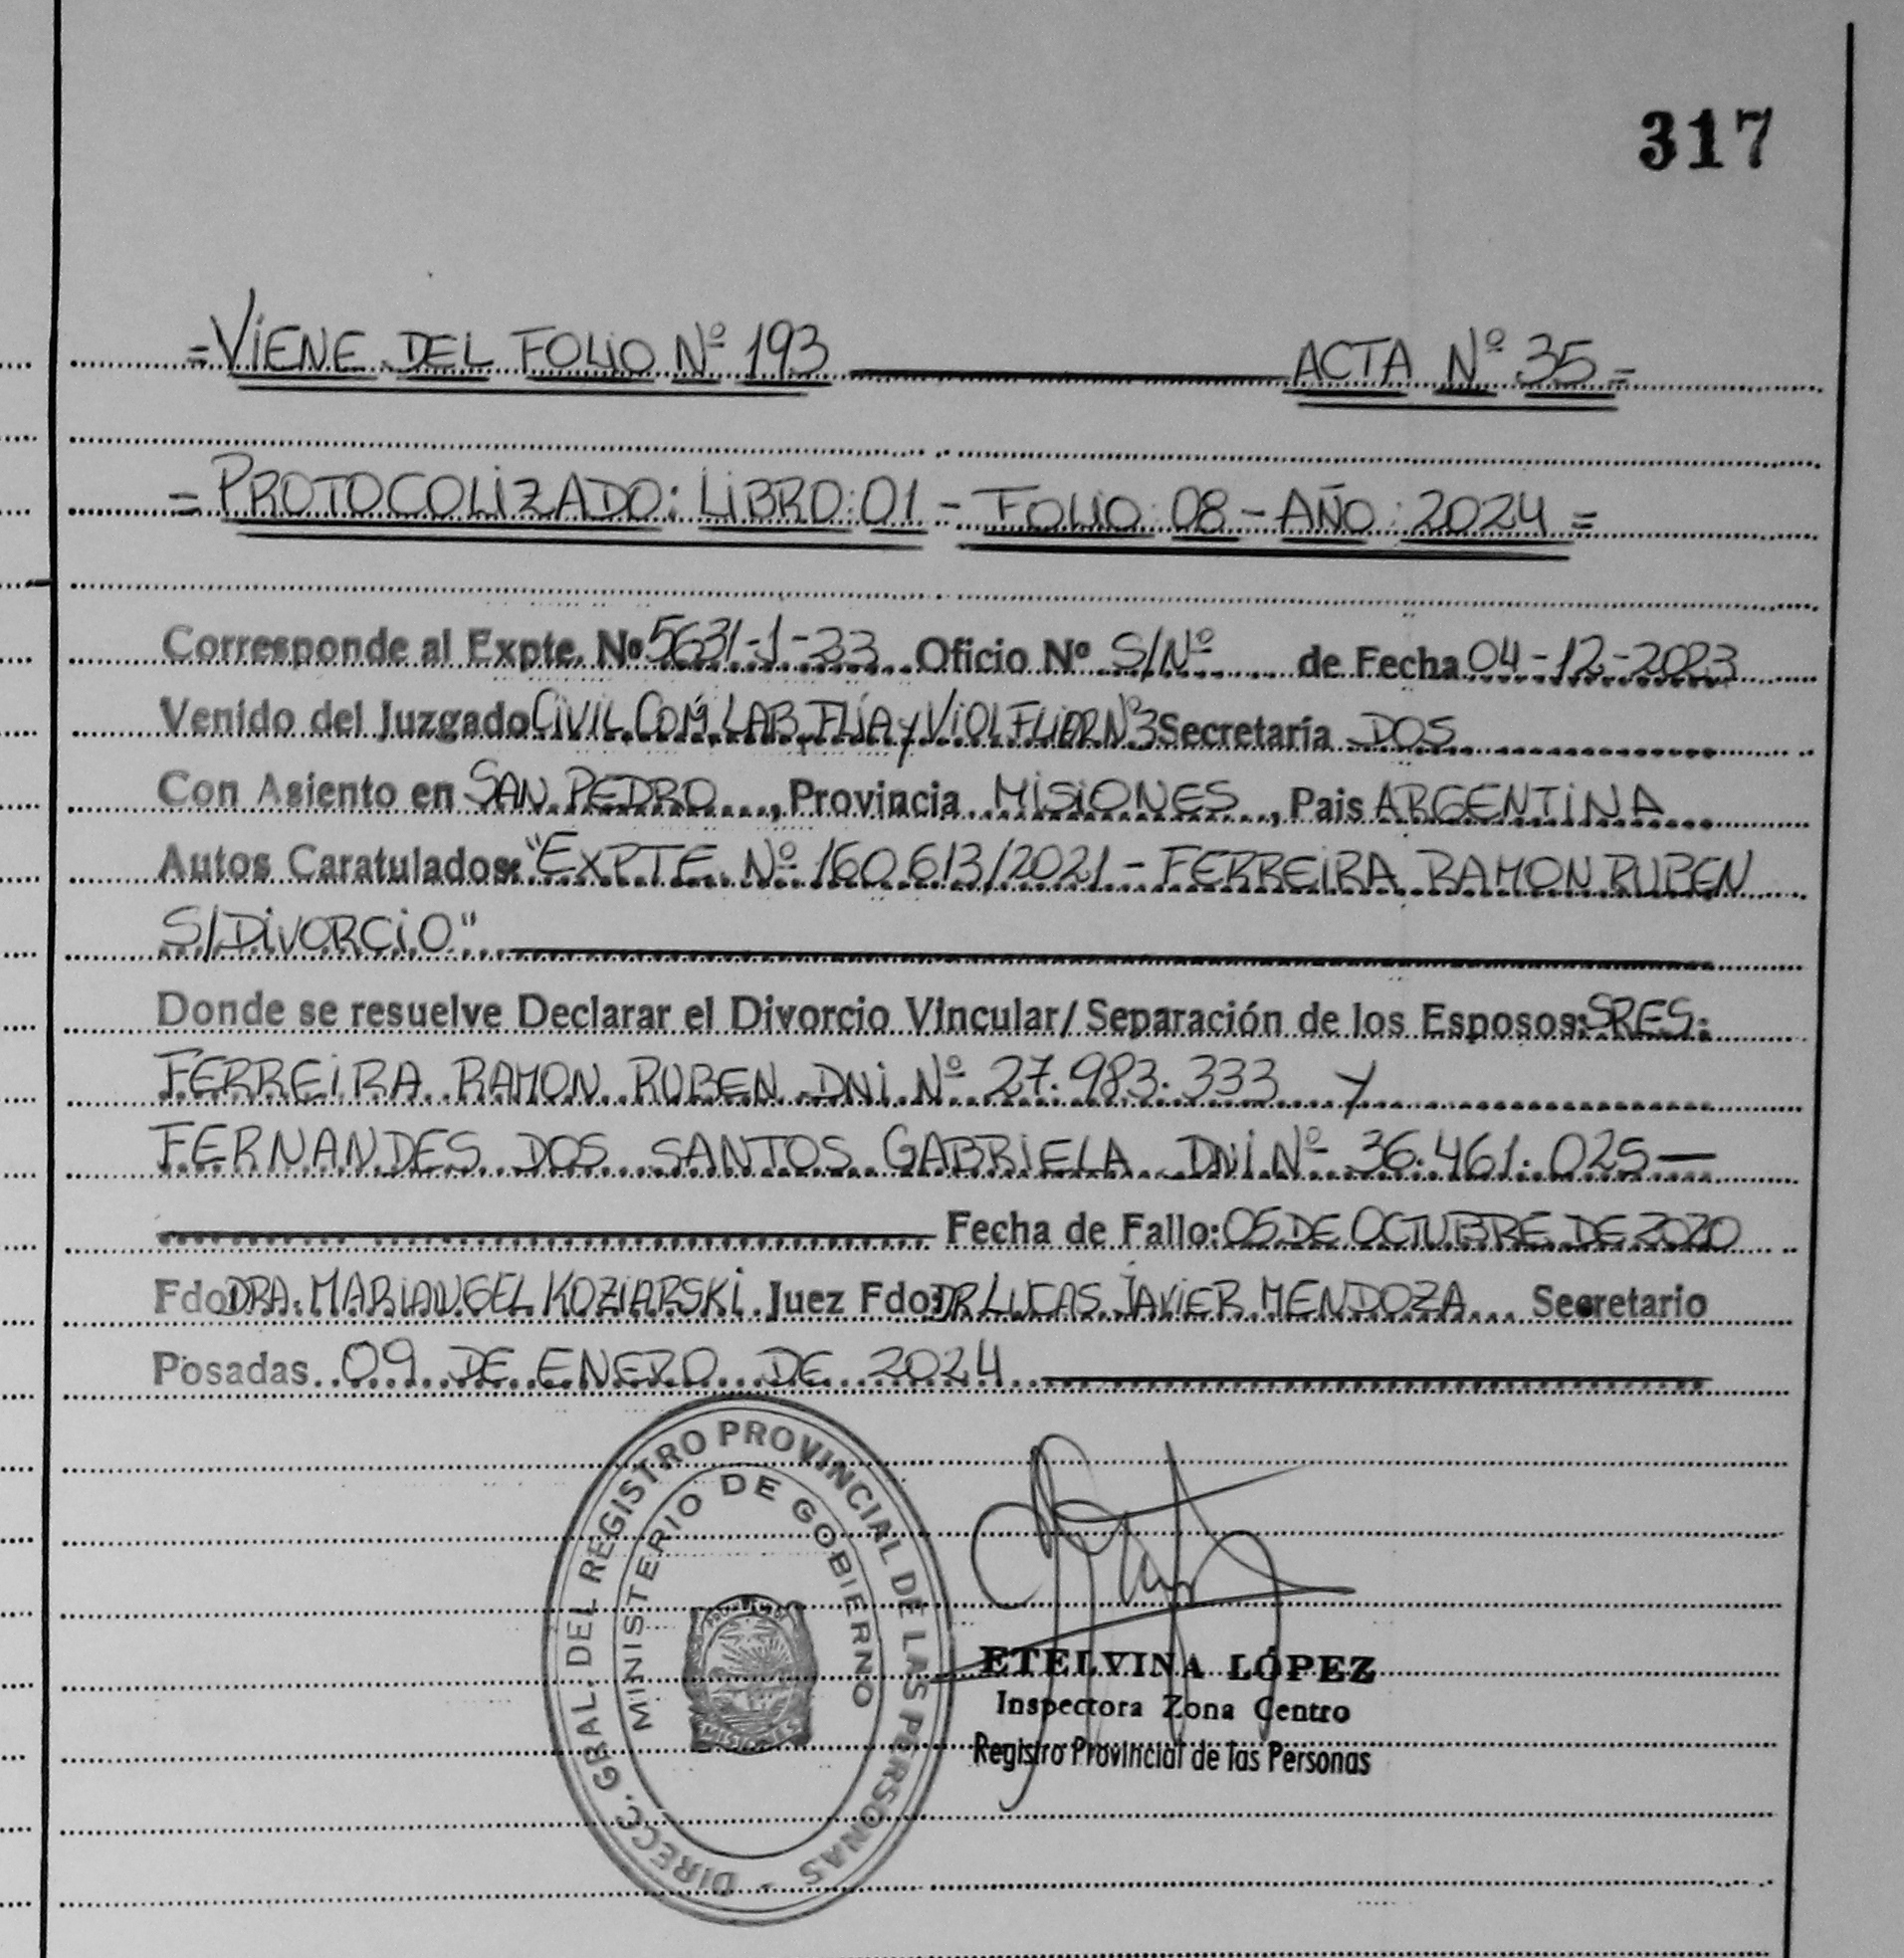 317
=VIENE DEL FOLIO Nº 193 ACTA Nº 35=
=PROTOCOLIZADO: LIBRO: 01 - FOLIO: 08 - AÑO: 2024=
Corresponde al Expte. Nº 5631-1-23 Oficio Nº S/Nº de Fecha 04-12-2023
Venido del Juzgado CIVIL, COM, LAB, FLIA y VIOL FLIAR Nº3 Secretaría DOS
Con Asiento en SAN PEDRO, Provincia MISIONES, Pais ARGENTINA
Autos Caratulados: "EXPTE. Nº 160613/2021 - FERREIRA RAMON RUBEN
S/DIVORCIO"
Donde se resuelve Declarar el Divorcio Vincular/ Separación de los Esposos: SRES:
FERREIRA RAMON RUBEN DNI Nº 27.983.333 Y
FERNANDES DOS SANTOS GABRIELA DNI Nº 36.461.025—
Fecha de Fallo: 05 DE OCTUBRE DE 2020
Fdo: DRA. MARIANGEL KOZIARSKI Juez Fdo: DR LUCAS JAVIER MENDOZA Secretario
Posadas 09 DE ENERO DE 2024
DIRECC. GRAL. DEL REGISTRO PROVINCIAL DE LAS PERSONAS -
MINISTERIO DE GOBIERNO
MISIONES
ETELVINA LÓPEZ
Inspectora Zona Centro
Registro Provincial de las Personas